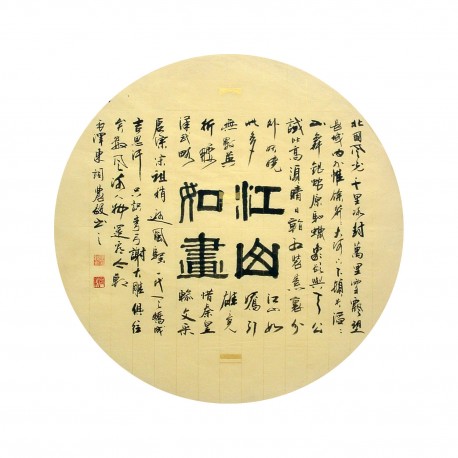 江山
如畫
北國風光千里冰封萬里雪飄望
長城內外惟餘莽莽大河上下頓失滔滔
山舞銀蛇原馳蠟象欲與天公
試比高須晴日看紅裝素裹分
外妖嬈江山如
此多嬌引
無數英雄競
折腰惜秦皇
漢武略輸文采
唐宗宋祖稍遜風騷一代天驕成
吉思汗只識彎弓射大雕俱往
矣數風流人物還看今朝
毛澤東詞書之